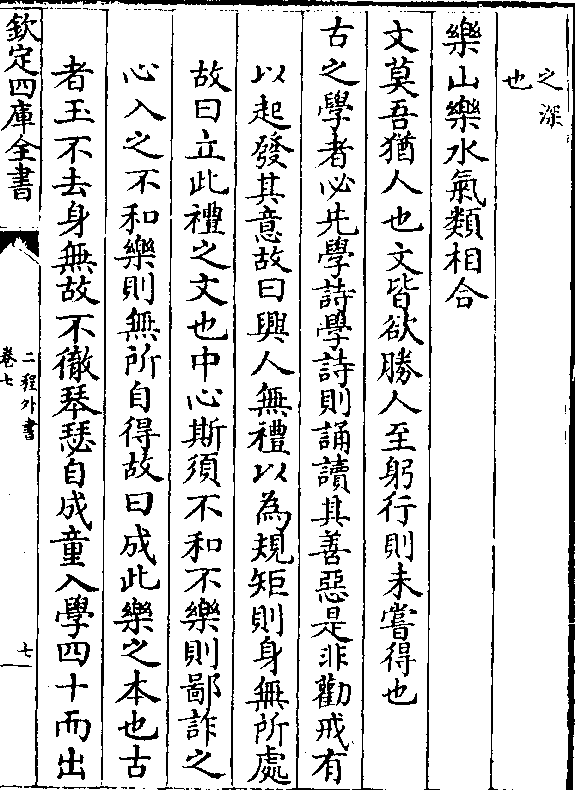 之深
也
樂山樂水氣類相合
文莫吾猶人也文皆欲勝人至躬行則未嘗得也
古之學者必先學詩學詩則誦讀其善惡是非勸戒有
以起發其意故曰興人無禮以為規矩則身無所處
故曰立此禮之文也中心斯須不和不樂則鄙詐之
心入之不和樂則無所自得故曰成此樂之本也古
者玉不去身無故不徹琴瑟自成童入學四十而出
欽定四庫全書
二程外書
卷七
七